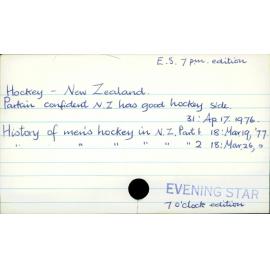 E.S. 7 pm. edition
Hockey - New Zealand.
Partain confident N.Z has good hockey side.
31: Ap. 17. 1976.
History of men's hockey in N.Z. Part 1 18: Mar 19, '77
" " " " " " 2 18: Mar 26, "
EVENING STAR
7 o'clock edition